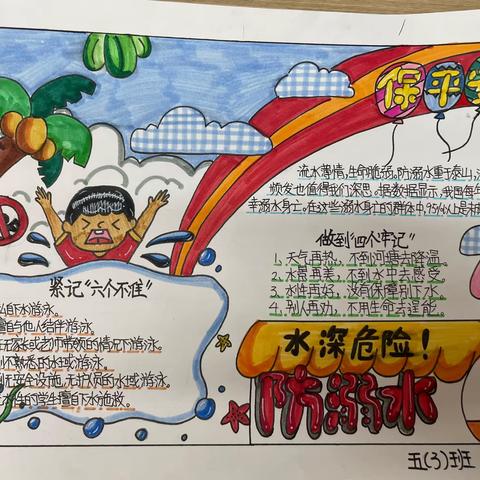 保平安
流水薄情,生命脆弱,防溺水重于泰山,
频发也值得我们深思。据数据显示,我国每年
幸溺水身亡。在这些溺水身亡的群体中,95%以上是
做到"四个牢记"
1、天气再热,不到河塘去降温。
2、水景再美,不到水中去感受。
3、水性再好,没有保障别下水。
4、别人再劝,不用生命去逞能。
紧记"六个不准"
私自下水游泳。
擅自与他人结伴游泳。
无家长或老师带领的情况下游泳。
到不熟悉的水域游泳。
到无安全设施、无救援的水域游泳。
水性的学生擅自下水施救。
水深危险!
防溺水
五(3)班